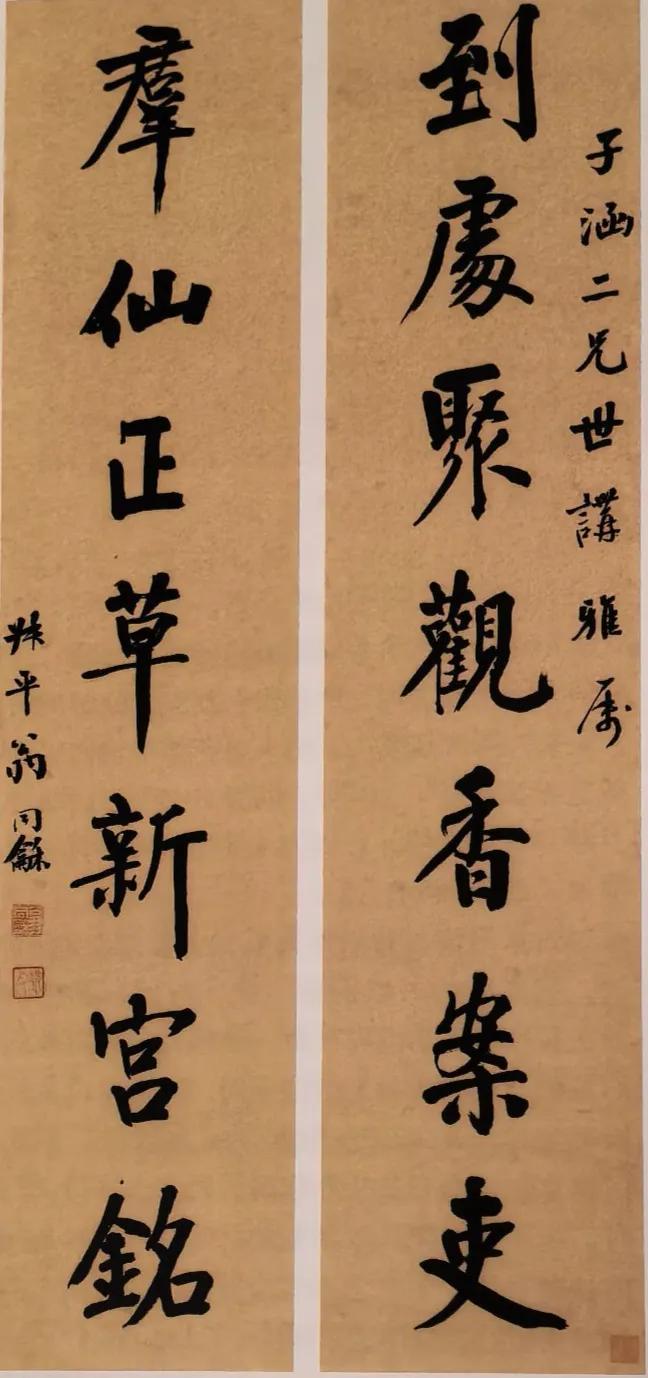 子涵二兄世講雅属
到處聚觀香案吏
羣仙正草新宮銘
叔平翁同龢